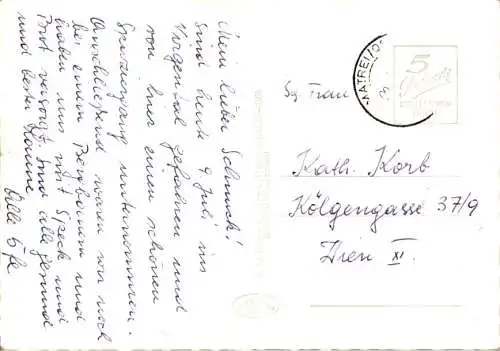 Mein lieber Schnuck!
Sind heute 9. Juli ins
Virgental gefahren und
von hier einen schönen
Spaziergang unternommen.
Anschließend waren wir noch
bei einem Bernbäuerin und
haben uns mit Speck und
Brot versorgt. Sind alle gesund
und bester Laune,
Alle
Sg. Frau
Kath. Korb
Kölgengasse 37/9
Wien XI.
MATREI/O
5